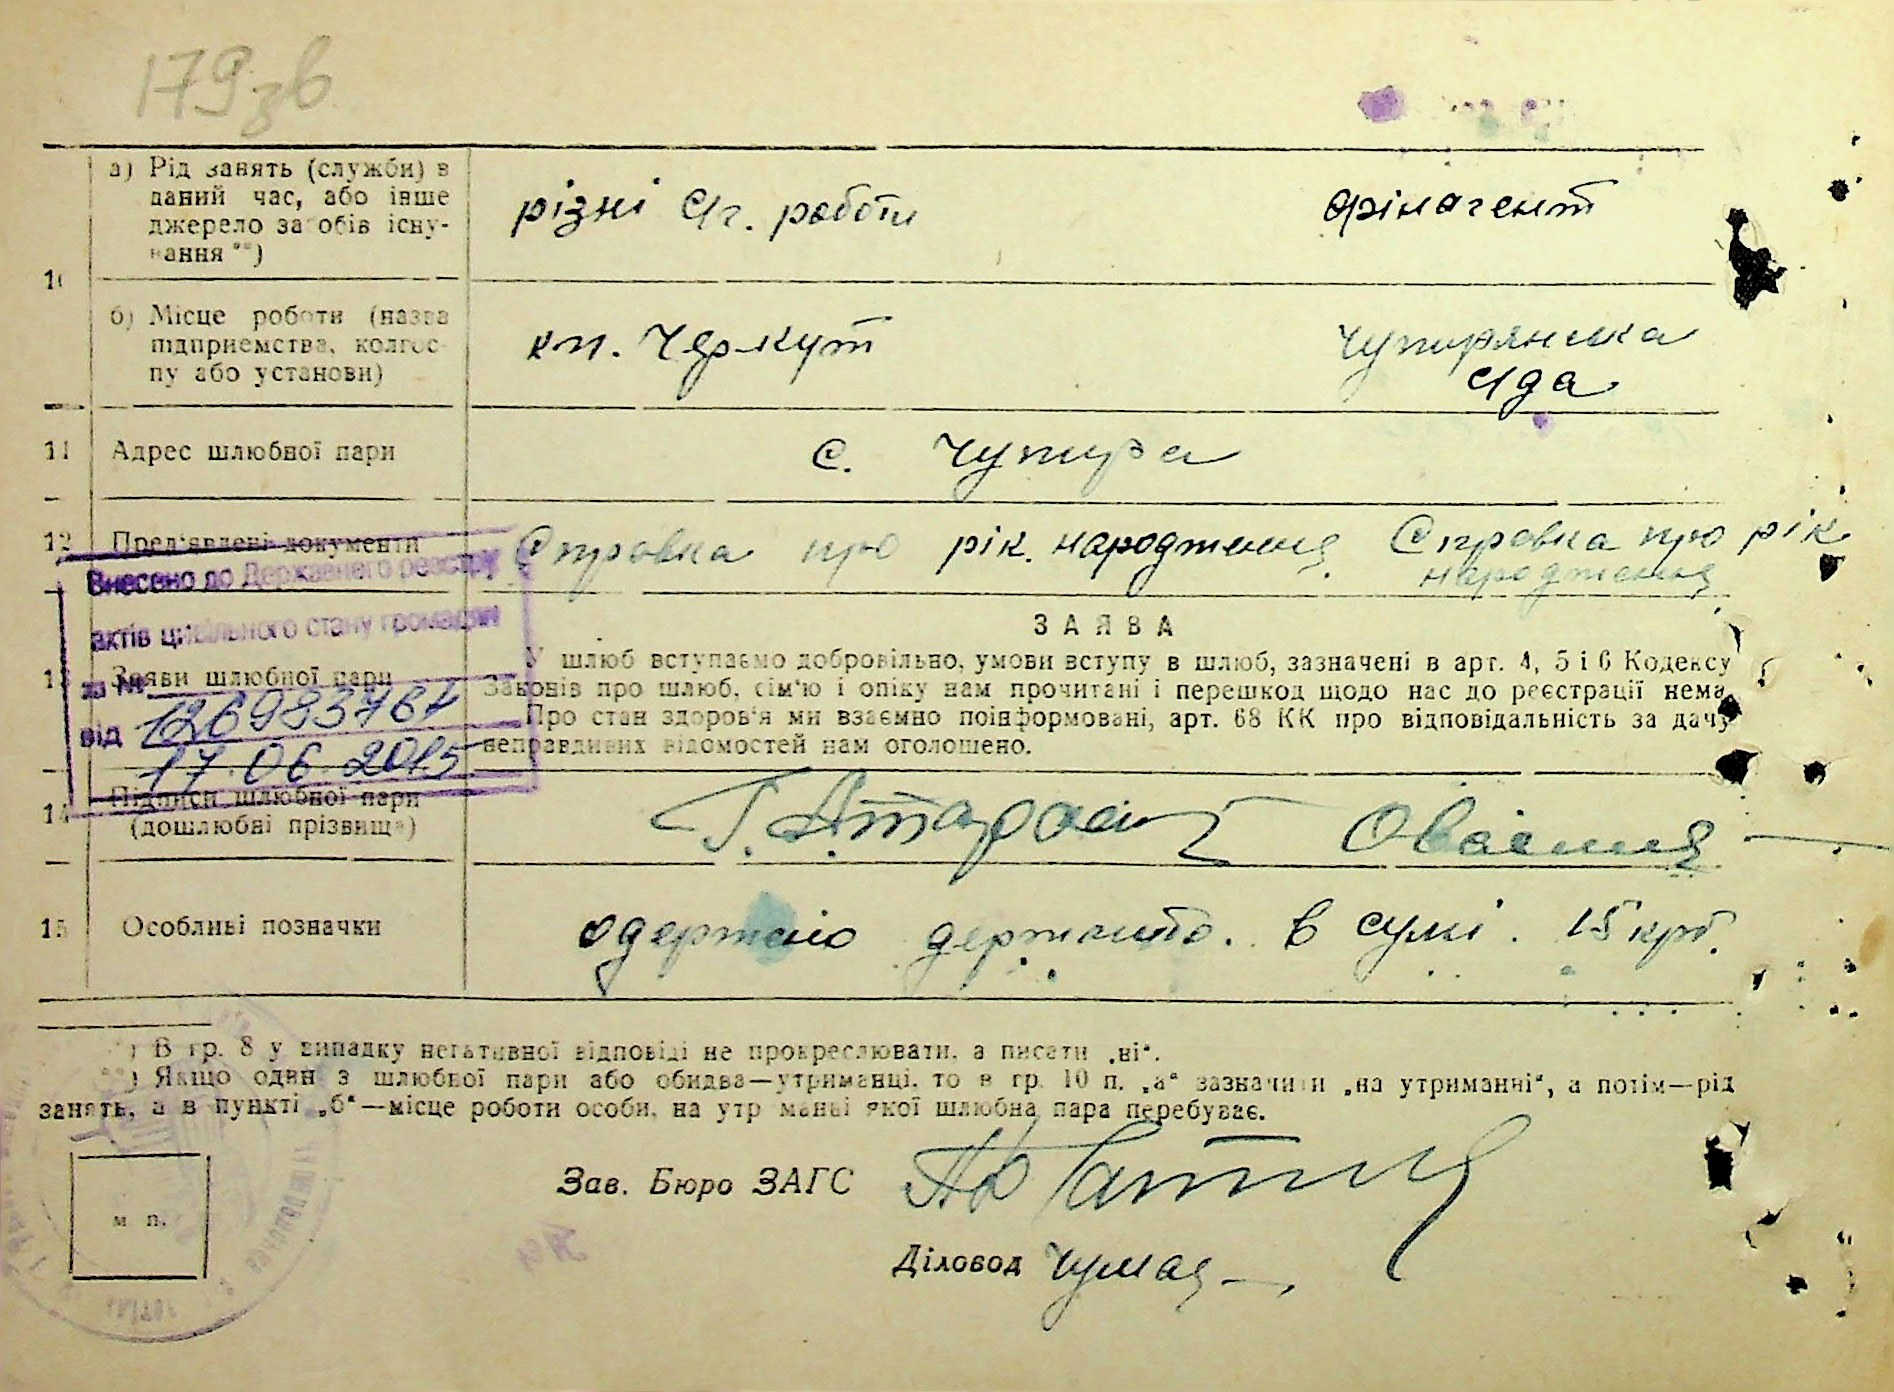 179 зв
а) Рід занять (служби) в
даний час, або інше
джерело засобів існу-
вання **)
різні с/г. роботи
фінагент
10
б) Місце роботи (назва
підприємства, колгос-
пу або установи)
кп.
Чупирянська
с/да
11 Адрес шлюбної пари
с. Чупира
12 Пред'явлені документи
Справка про рік народження
Справка про рік
народження
Внесено до Державного реєстру
актів цивільного стану громадян
за №
від 126983764
17.06.2015
13 Заяви шлюбної пари
ЗАЯВА
У шлюб вступаємо добровільно, умови вступу в шлюб, зазначені в арт. 4, 5 і 6 Кодексу
Законів про шлюб, сім'ю і опіку нам прочитані і перешкод щодо нас до реєстрації нема.
Про стан здоров'я ми взаємно поінформовані, арт. 68 КК про відповідальність за дачу
неправдивих відомостей нам оголошено.
14 Підписи шлюбної пари
(дошлюбні прізвища)
15 Особливі позначки
одержано держмито. в сумі. 15 крб.
*) В гр. 8 у випадку негативної відповіді не прокреслювати, а писати „ні“.
**) Якщо один з шлюбної пари або обидва—утриманці, то в гр. 10 п. „а“ зазначити „на утриманні“, а потім—рід
занять, а в пункті „б“—місце роботи особи, на утриманні якої шлюбна пара перебуває.
Зав. Бюро ЗАГС
м п.
Діловод